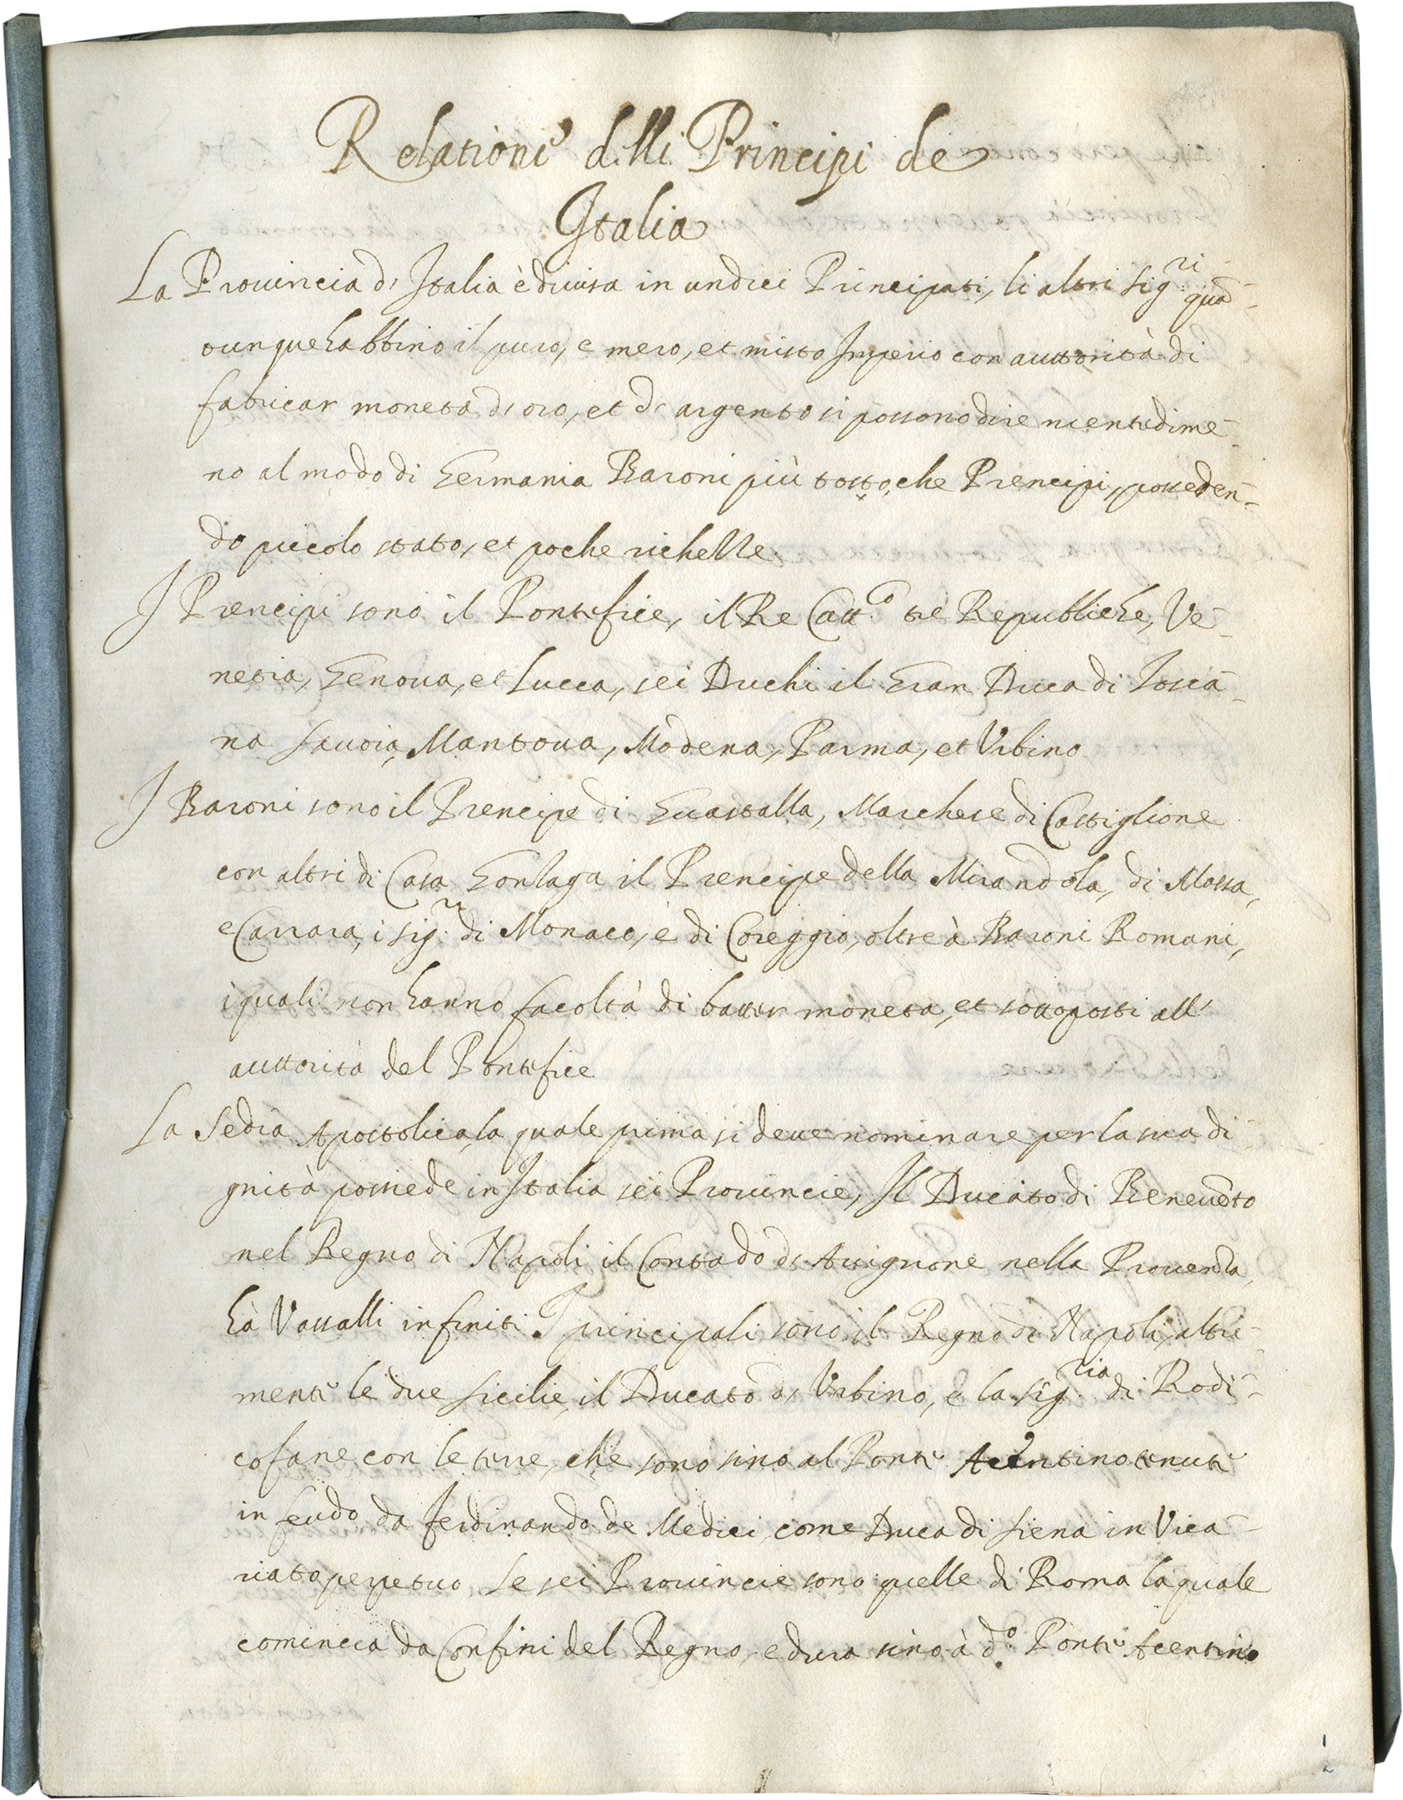 Relatione delli Principi de
Italia
La Prouincia di Italia è diuisa in undici Principati, li altri Sig.ri qua-
tunque habbino il puro, e mero, et misto Imperio con auttorità di
fabricar moneta di oro, et di argento si possono dire nientedime-
no al modo di Germania Baroni più tosto, che Prencipi, posseden-
do piccolo stato, et poche richezze
I Prencipi sono il Pontefice, il Re Catt.co tre Republiche, Ve-
netia, Genoua, et Lucca, sei Duchi il Gran Duca di Tosca-
na Sauoia, Mantoua, Modena, Parma, et Urbino
I Baroni sono il Prencipe di Guastalla, Marchese di Castiglione
con altri di Casa Gonzaga il Prencipe della Mirandola, di Massa,
e Carrara, i Sig.ri di Monaco, è di Coreggio, oltre à Baroni Romani,
i quali non hanno facoltà di batter moneta, et sottoposti all'
auttorità del Pontefice
La Sedia Apostolica, la quale prima si deue nominare per la sua di
gnità possiede in Italia sei Prouincie, Il Ducato di Beneuēto
nel Regno di Napoli il Contado di Auignone nella Prouenza
hà Vassalli infiniti I principali sono il Regno di Napoli, altri-
menti le due Sicilie, il Ducato di Urbino, è la Sig.ria di Radi-
cofane con le terre, che sono sino al Ponte Acentino tenute
in feudo da Ferdinando de Medici come Duca di Siena in Vica-
riato perpetuo Le sei Prouincie sono quelle di Roma la quale
comincia da Confini del Regno, e dura sino à d.o Ponte Acentino
1
2